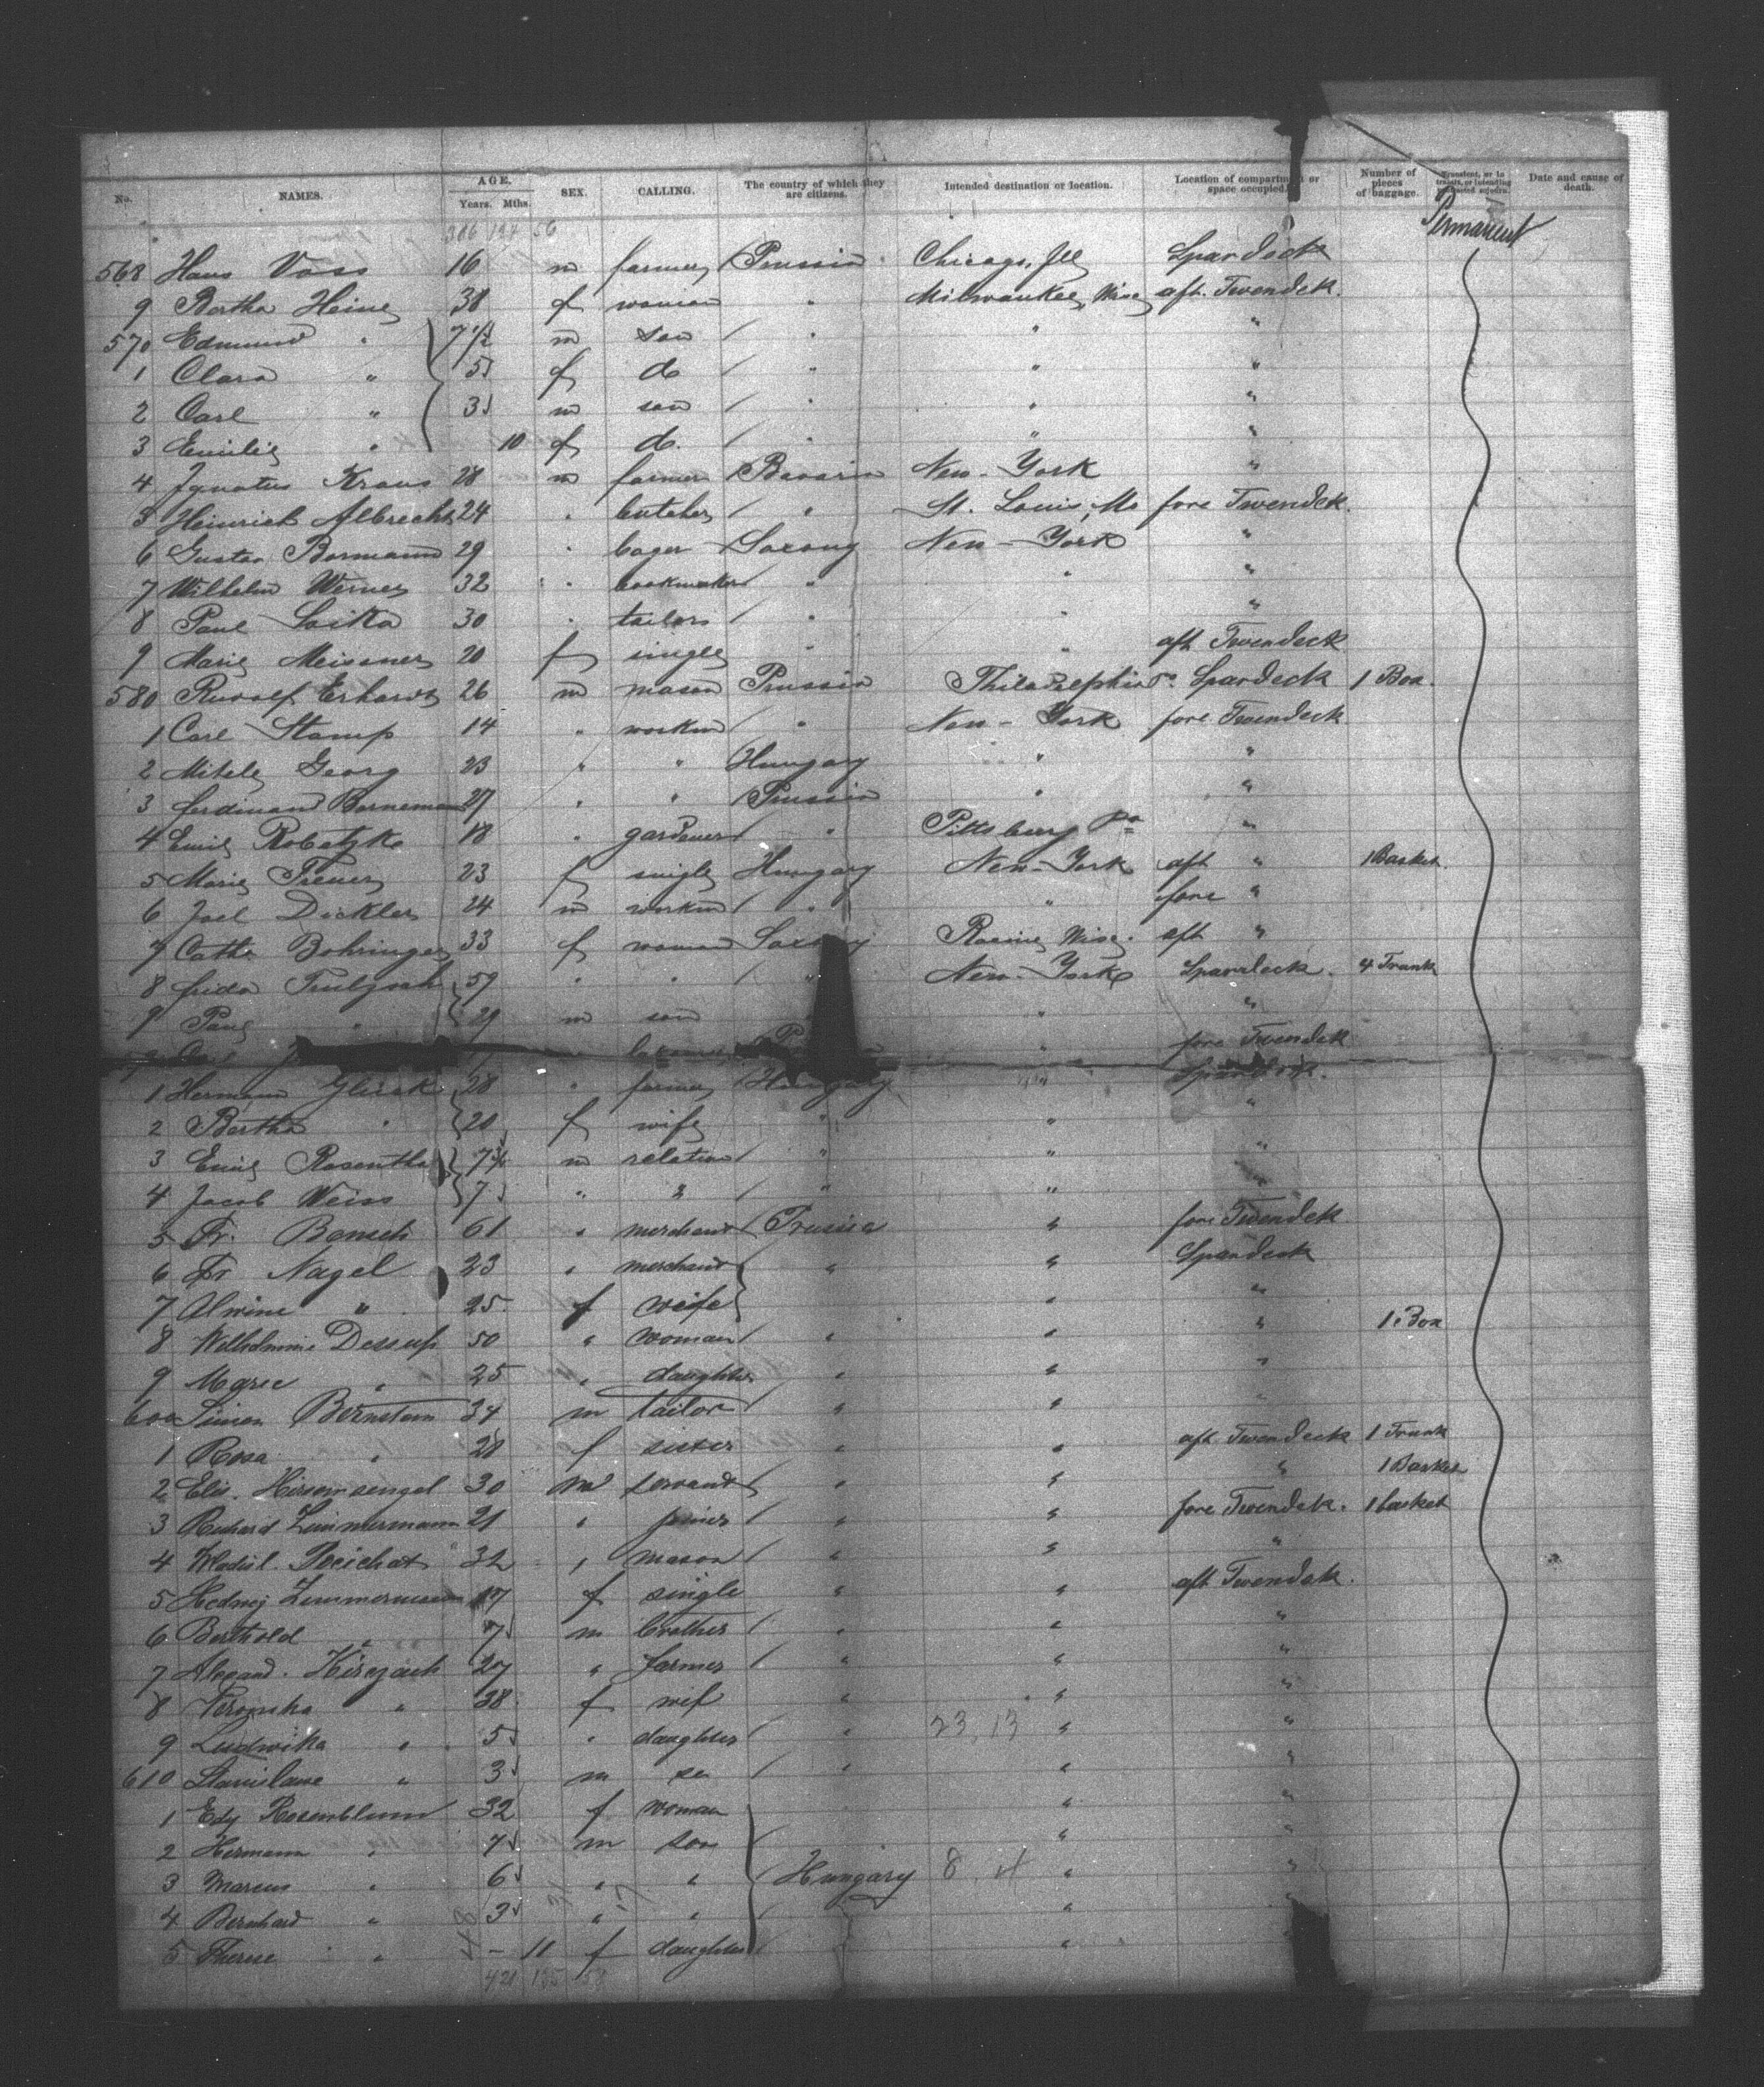 No. NAMES. AGE. Years. Mths. SEX. CALLING. The country of which they are citizens. Intended destination or location. Location of compartment or space occupied. Number of pieces of baggage. Date and cause of death.
Permanent
568 Hans Voss 16 m farmer Prussia Chicago, Ill Spardeck
9 Bertha Heine 38 f woman " Milwaukee, Wisc. aft. Twendek.
570 Edmund " 7 1/2 m son " " "
1 Clara " 5 f do " " "
2 Carl " 3 m son " " "
3 Emilie " 10 f do. " " "
4 Ignatus Kraus 28 m farmer Bavaria New-York "
5 Heinrich Albrecht 24 " butcher " St. Louis, Mo fore Twendek.
6 Gustav Bormann 29 " Saxony New-York "
7 Wilhelm Werner 32 " " " "
8 Paul 30 " tailor " " "
9 Marie Meissner 20 f single " " aft Twendeck
580 Rudolf Erhardt 26 m mason Prussia Philadelphia Pa. Spardeck 1 Box.
1 Carl Stamp 14 " workm " New-York fore Twendeck
2 Georg 23 " " Hungary " "
3 Ferdinand Bornemann 27 " " Prussia " "
4 Emil Robatzke 18 " gardener " Pittsburg Pa "
5 Marie 23 f single Hungary New-York aft " 1 Basket.
6 Joel Dickler 24 m workm " " fore "
7 Cathe Bohringer 33 f woman Saxony Racine, Wisc. aft "
8 Frida 59 " " " New-York Spardeck. 4 Trunk
9 Paul " 29 m son " "
fore Twendek
1 Hermann Glück 28 " farmer Hungary " Spardeck.
2 Bertha " 20 f wife " " "
3 Emil Rosenthal m relation " " "
4 Jacob Weiss 7 " " " " "
5 Fr. Bensch 61 " merchant Prussia " fore Twendek
6 Fr Nagel 23 " merchant " " Spardeck
7 Alwine " 25 f wife " "
8 Wilhelmine 50 " woman " " " 1 Box
9 Marie " 25 " daughter " " "
600 Simon Bernstein 34 m tailor " " "
1 Rosa " 20 f sister " " aft Twendeck 1 Trunk
2 Elis. 30 m servant " " " 1 Basket
3 Richard Zimmermann 21 " joiner " " fore Twendek. 1 basket
4 Wladisl. 32 " mason " " "
5 Hedwig Zimmermann 17 f single " " aft Twendek.
6 Berthold " 7 m brother " " "
7 Alexand. 27 " farmer " " "
8 Veronika " 38 f wif " " "
9 Ludwika " 5 " daughter " 23, 13 " "
610 Stanislaus " 3 m " " "
1 Edy Rosenblum 32 f woman " "
2 Hermann " 7 m son " "
3 Marcus " 6 " " Hungary 8, " "
4 Bernhard " 3 " " " "
5 Therese " – 11 f daughter "
421 135 58